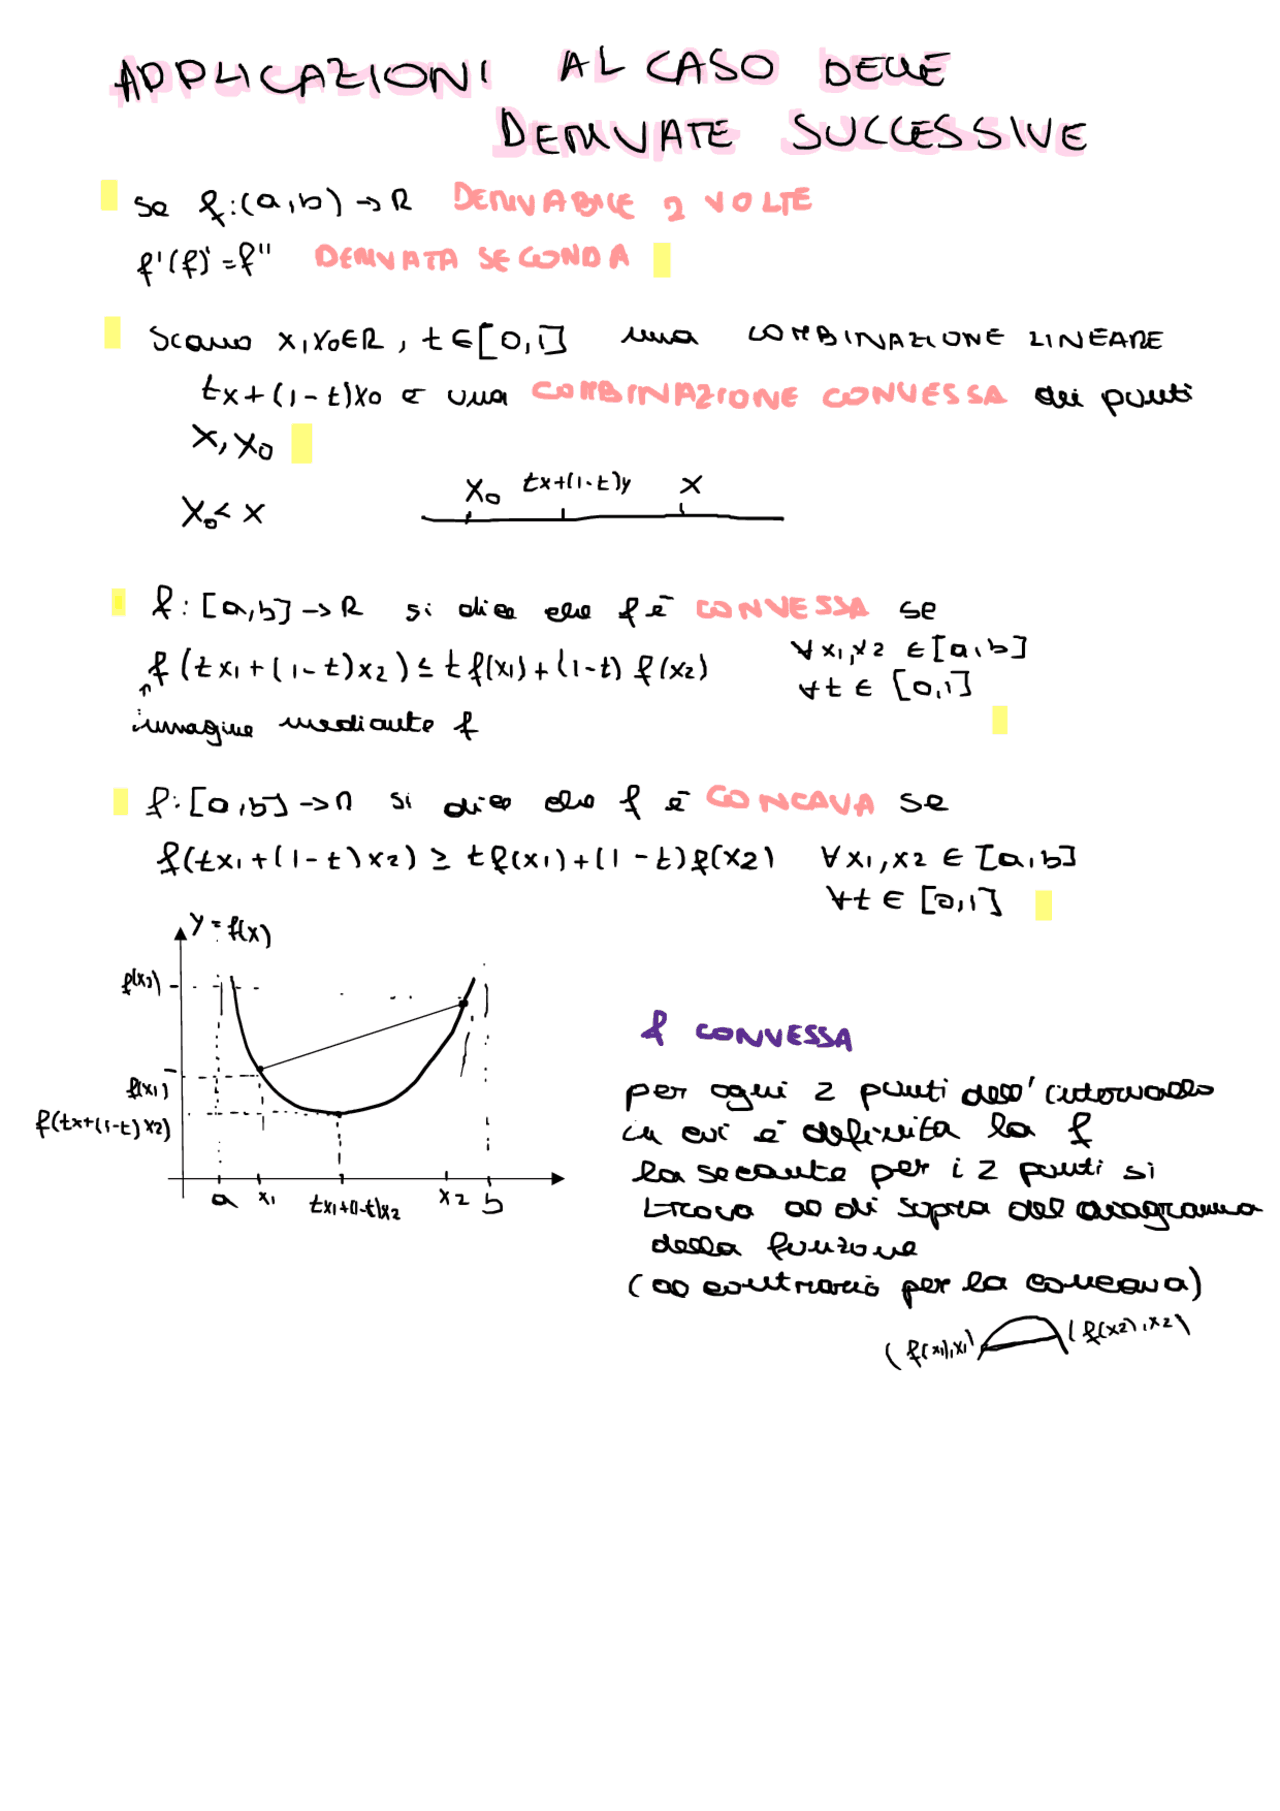 APPLICAZIONI AL CASO DELLE
DERIVATE SUCCESSIVE
se f:(a,b)→R DERIVABILE 2 VOLTE
f'(f)'=f'' DERIVATA SECONDA
Siano x,x₀∈R, t∈[0,1] una COMBINAZIONE LINEARE
tx+(1-t)x₀ è una COMBINAZIONE CONVESSA dei punti
x,x₀
x₀<x
x₀ tx+(1-t)y x
f:[a,b]→R si dice che f è CONVESSA se
f(tx₁+(1-t)x₂)≤tf(x₁)+(1-t)f(x₂) ∀x₁,x₂∈[a,b]
∀t∈[0,1]
immagine mediante f
f:[a,b]→R si dice che f è CONCAVA se
f(tx₁+(1-t)x₂)≥tf(x₁)+(1-t)f(x₂) ∀x₁,x₂∈[a,b]
∀t∈[0,1]
y=f(x)
f(x₂)
f(x₁)
f(tx+(1-t)x₂)
a x₁ tx₁+(1-t)x₂ x₂ b
f CONVESSA
per ogni 2 punti dell'intervallo
in cui è definita la f
la secante per i 2 punti si
trova al di sopra del diagramma
della funzione
(al contrario per la concava)
(f(x₁),x₁) (f(x₂),x₂)